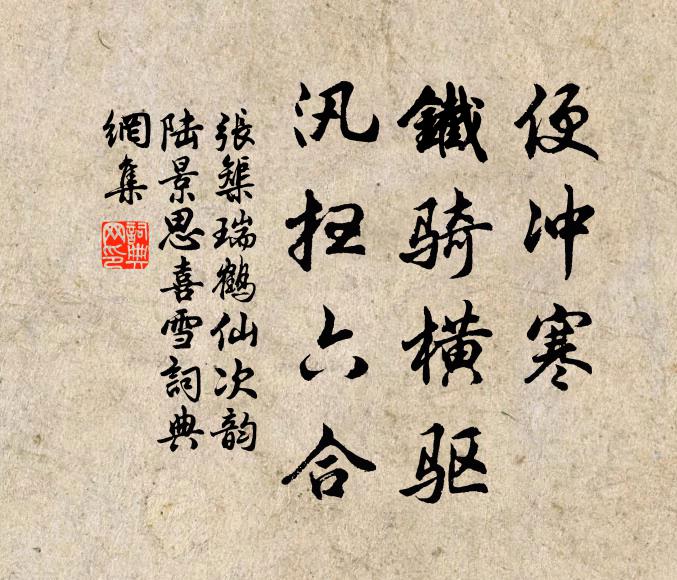 便冲寒
鐵骑橫驱
汛扫六合
張榘瑞鶴仙次韵
陆景思喜雪詞典
網集
詞典
网印